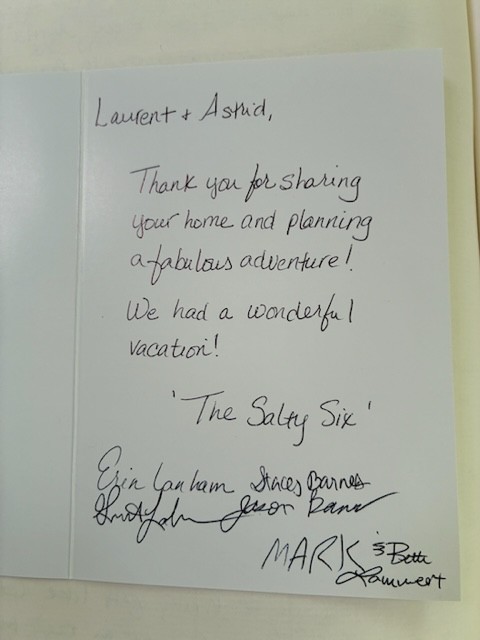 Laurent + Astrid,
Thank you for sharing
your home and planning
a fabulous adventure!
We had a wonderful
vacation!
'The Salty Six'
Erin Lanham Stacey Barnes
Jason
MARK & Beth
Lammert